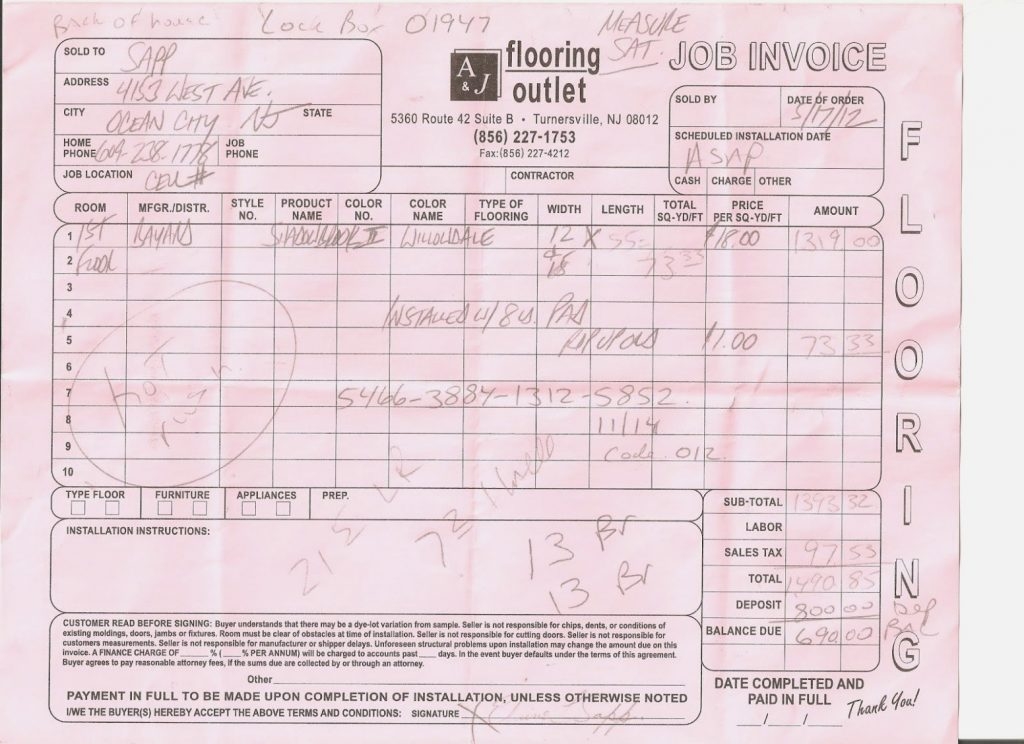 Back of house Lock Box 01947 MEASURE SAT.
SOLD TO SAPP
ADDRESS 4153 WEST AVE.
CITY OCEAN CITY NJ STATE
HOME PHONE 609-238-1778 JOB PHONE
JOB LOCATION CELL#
A & J flooring outlet
5360 Route 42 Suite B • Turnersville, NJ 08012
(856) 227-1753
Fax:(856) 227-4212
CONTRACTOR
JOB INVOICE
SOLD BY DATE OF ORDER 5/17/12
SCHEDULED INSTALLATION DATE
ASAP
CASH CHARGE OTHER
FLOORING
ROOM MFGR./DISTR. STYLE NO. PRODUCT NAME COLOR NO. COLOR NAME TYPE OF FLOORING WIDTH LENGTH TOTAL SQ-YD/FT PRICE PER SQ-YD/FT AMOUNT
1 1ST II WILLOWDALE 12 X 55- $18.00 1319 00
2 FLOOR 73 33
3
4 INSTALLED W/ 8 LB. PAD
5 RIP UP OLD $1.00 73 33
6
7 5466-3884-1312-5852
8 11/14
9 Code 012
10
TYPE FLOOR FURNITURE APPLIANCES PREP.
INSTALLATION INSTRUCTIONS:
13 Br
13 Br
SUB-TOTAL 1393 32
LABOR
SALES TAX 97 53
TOTAL 1490 85
DEPOSIT 800 00 Dep
BALANCE DUE 690.00 BAL
CUSTOMER READ BEFORE SIGNING: Buyer understands that there may be a dye-lot variation from sample. Seller is not responsible for chips, dents, or conditions of
existing moldings, doors, jambs or fixtures. Room must be clear of obstacles at time of installation. Seller is not responsible for cutting doors. Seller is not responsible for
customers measurements. Seller is not responsible for manufacturer or shipper delays. Unforeseen structural problems upon installation may change the amount due on this
invoice. A FINANCE CHARGE OF ____ % ( ____ % PER ANNUM) will be charged to accounts past ____ days. In the event buyer defaults under the terms of this agreement.
Buyer agrees to pay reasonable attorney fees, if the sums due are collected by or through an attorney.
Other
PAYMENT IN FULL TO BE MADE UPON COMPLETION OF INSTALLATION, UNLESS OTHERWISE NOTED
I/WE THE BUYER(S) HEREBY ACCEPT THE ABOVE TERMS AND CONDITIONS: SIGNATURE X Sapp
DATE COMPLETED AND PAID IN FULL
___/___/___
Thank You!